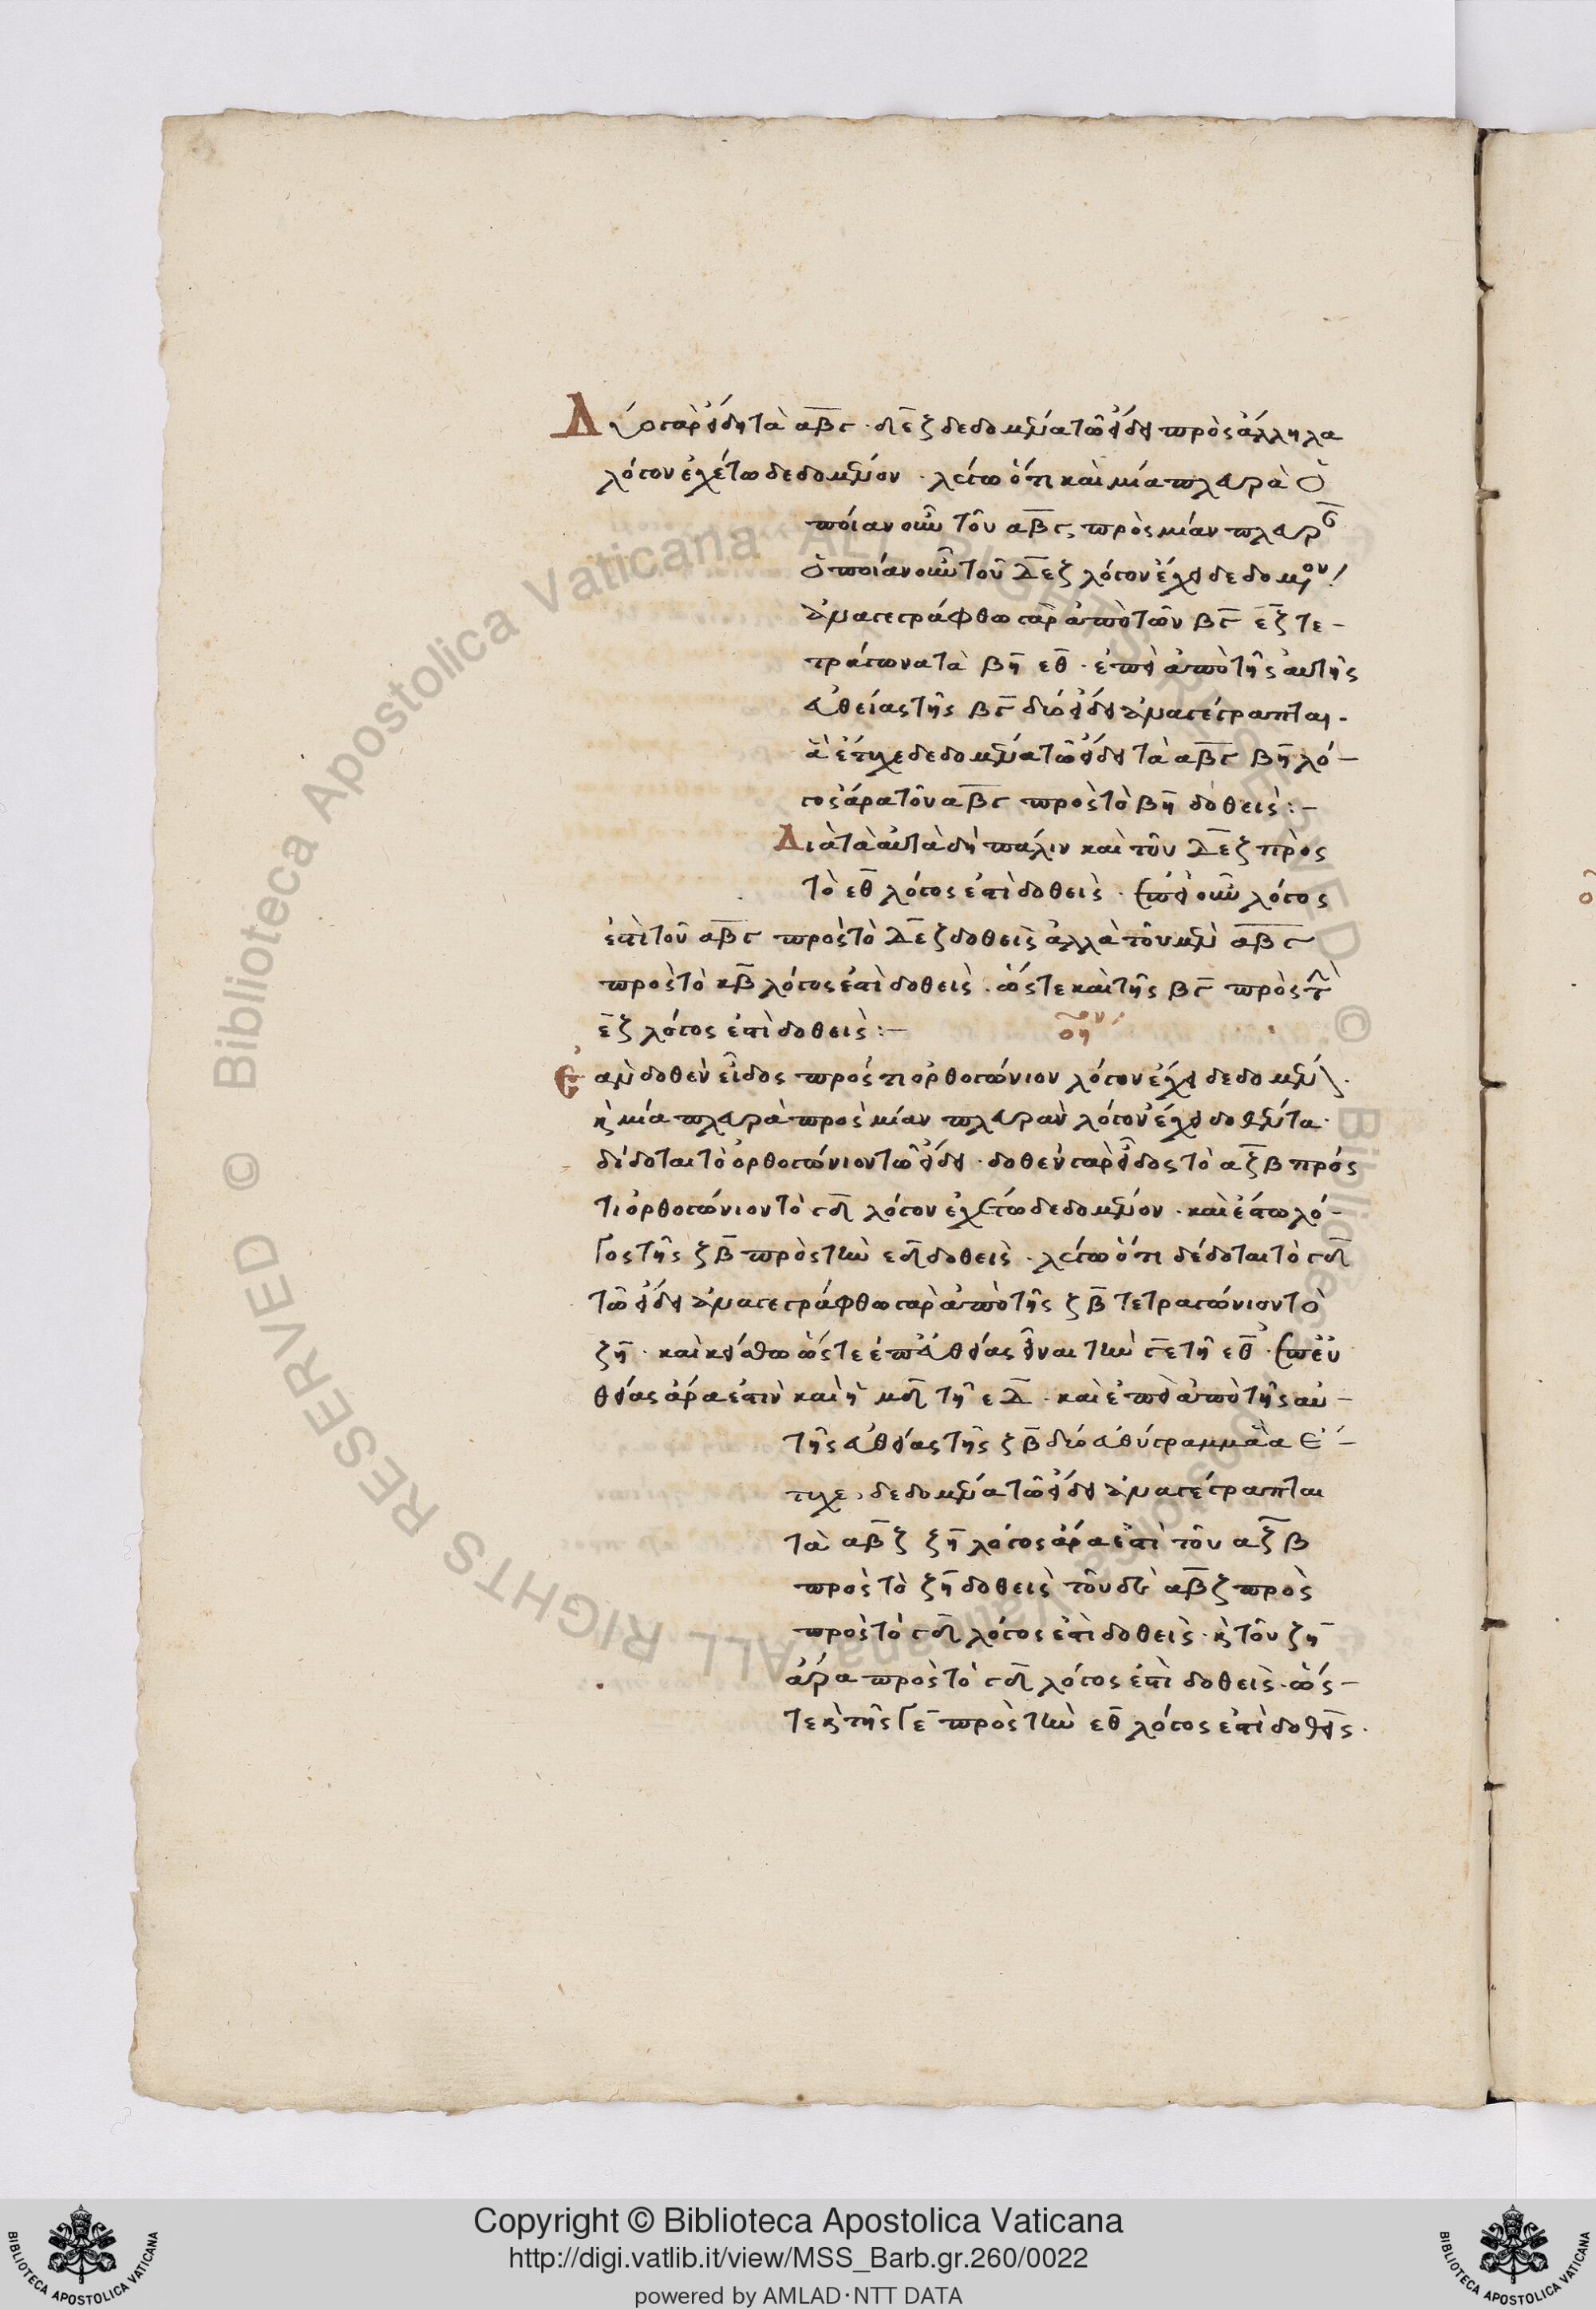 Δύο γὰρ εἴδη τὰ αβγ · δεζ δεδομένα τῶ εἴδει πρὸς ἄλληλα
λόγον ἐχέτω δεδομένον · λέγω ὅτι καὶ μία πλευρὰ ὁ
ποίαν οὖν τοῦ αβγ πρὸς μίαν πλευρὰν
ὁποίαν οὖν τοῦ δεζ λόγον ἔχει δεδομένον
ἀναγεγράφθω γὰρ ἀπὸ τῶν βγ εζ τε-
τράγωνα τὰ βη εθ · ἐπεὶ ἀπὸ τῆς αὐτῆς
εὐθείας τῆς βγ δύο εἴδει ἀναγέγραπται ·
ἃ ἔτυχε δεδομένα τῶ εἴδει τὰ αβγ βη λό-
γος ἄρα τοῦ αβγ πρὸς τὸ βη δοθεὶς :-
Διὰ τὰ αὐτὰ δὴ πάλιν καὶ τοῦ δεζ πρὸς
τὸ εθ λόγος ἐστὶ δοθεὶς · ἐπεὶ οὖν λόγος
ἐστὶ τοῦ αβγ πρὸς τὸ δεζ δοθεὶς ἀλλὰ τοῦ μὲν αβγ
πρὸς τὸ κβ λόγος ἐστὶ δοθεὶς · ὥστε καὶ τῆς βγ πρὸς τὴν
εζ λόγος ἐστὶ δοθεὶς :-
οη
Ἐὰν δοθὲν εἶδος πρός τι ὀρθογώνιον λόγον ἔχει δεδομένον ·
κ μία πλευρὰ πρὸς μίαν πλευρὰν λόγον ἔχει δοθέντα ·
δίδοται τὸ ὀρθογώνιον τῶ εἴδει · δοθὲν γὰρ εἶδος τὸ αζβ πρός
τι ὀρθογώνιον τὸ γδ λόγον ἐχέτω δεδομένον · καὶ ἔστω λό-
γος τῆς ζβ πρὸς τὴν εδ δοθεὶς · λέγω ὅτι δέδοται τὸ γδ
τῶ εἴδει ἀναγεγράφθω γὰρ ἀπὸ τῆς ζβ τετραγώνιον τὸ
ζη · καὶ κείσθω ὥστε ἐπ' εὐθείας εἶναι τὴν γε τῆ εθ · ἐπ' εὐ
θείας ἄρα ἐστὶν καὶ ἡ μδ τῆ εδ · καὶ ἐπεὶ ἀπὸ τῆς αὐ-
τῆς εὐθείας τῆς ζβ δύο εὐθύγραμμα ἃ ἔ-
τυχε, δεδομένα τῶ εἴδει ἀναγέγραπται
τὰ αβζ ζη λόγος ἄρα ἐστὶ τοῦ αζβ
πρὸς τὸ ζη δοθεὶς τοῦ δὲ αβζ πρὸς
πρὸς τὸ γδ λόγος ἐστὶ δοθεὶς · κ τοῦ ζη
ἄρα πρὸς τὸ γδ λόγος ἐστὶ δοθεὶς · ὥσ-
τε κ τῆς γε πρὸς τὴν εθ λόγος ἐστὶ δοθείς ·
Copyright © Biblioteca Apostolica Vaticana
http://digi.vatlib.it/view/MSS_Barb.gr.260/0022
powered by AMLAD·NTT DATA